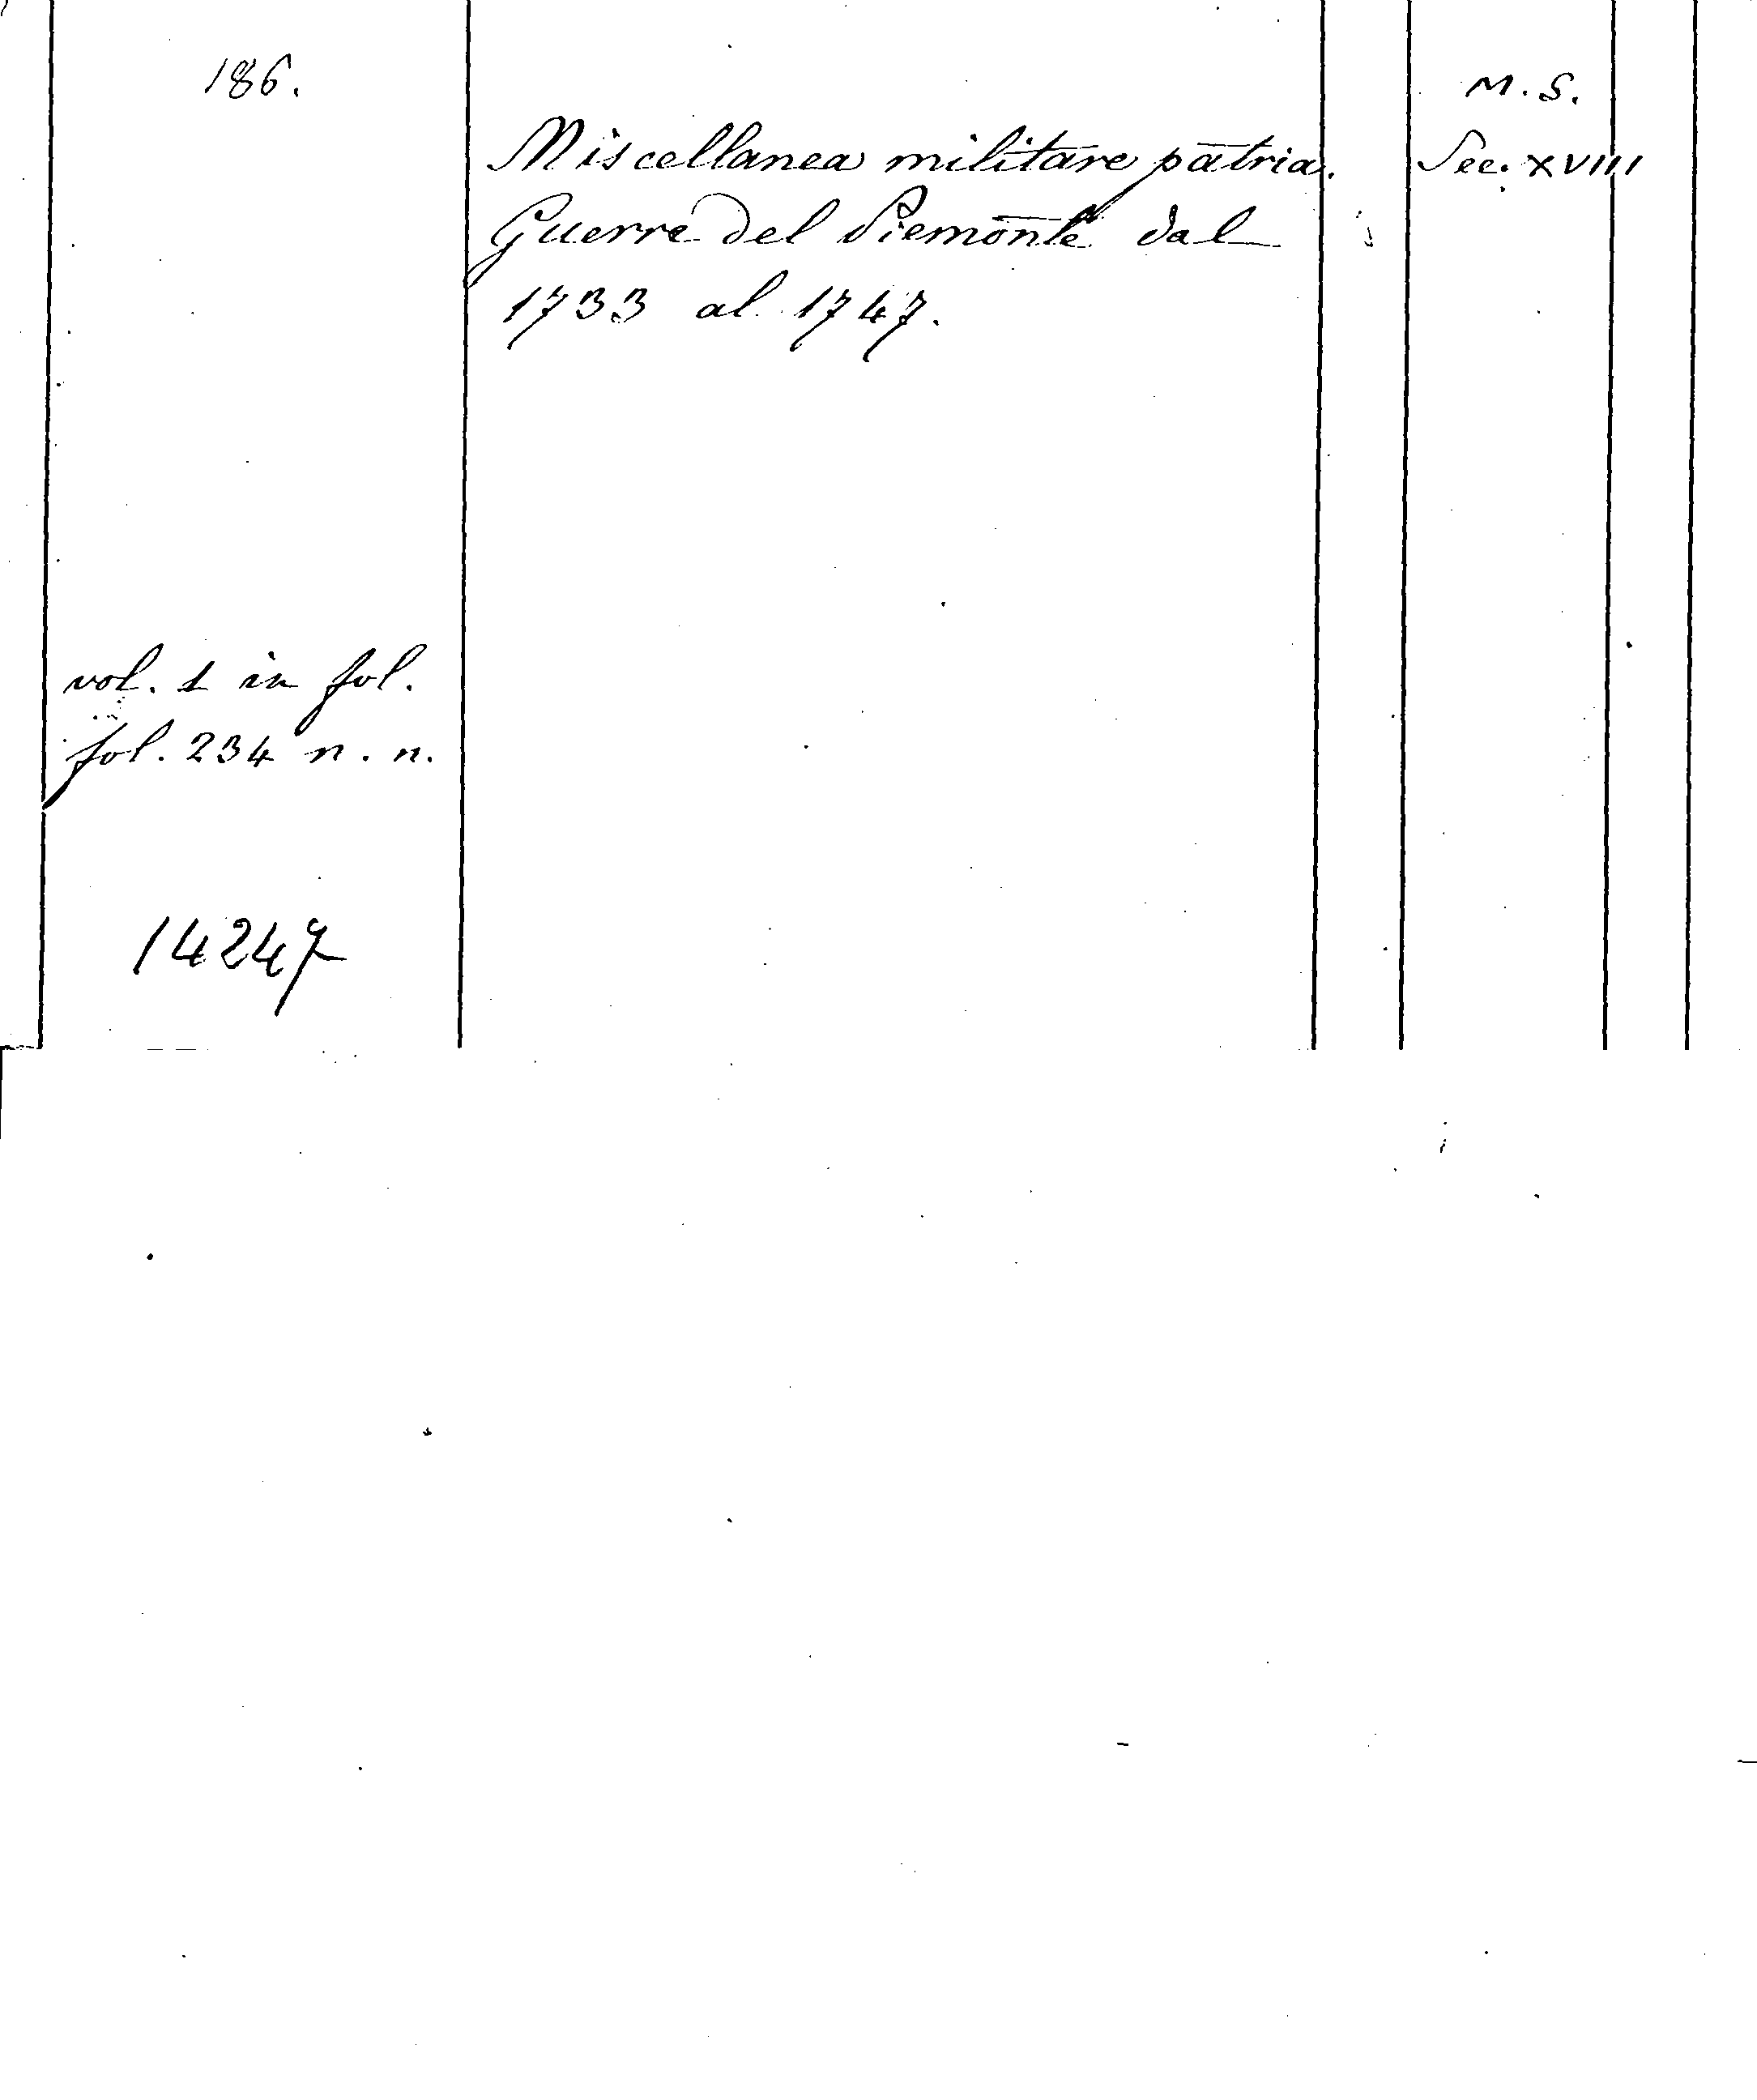 186.
M.S.
Miscellanea militare patria.
Sec. XVIII
Guerre del Piemonte dal
1733 al 1747.
vol. 1 in fol.
fol. 234 n.n.
14247